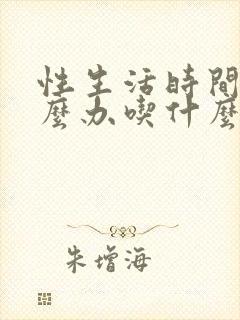 性生活時間
麼办喫什麼
朱增海